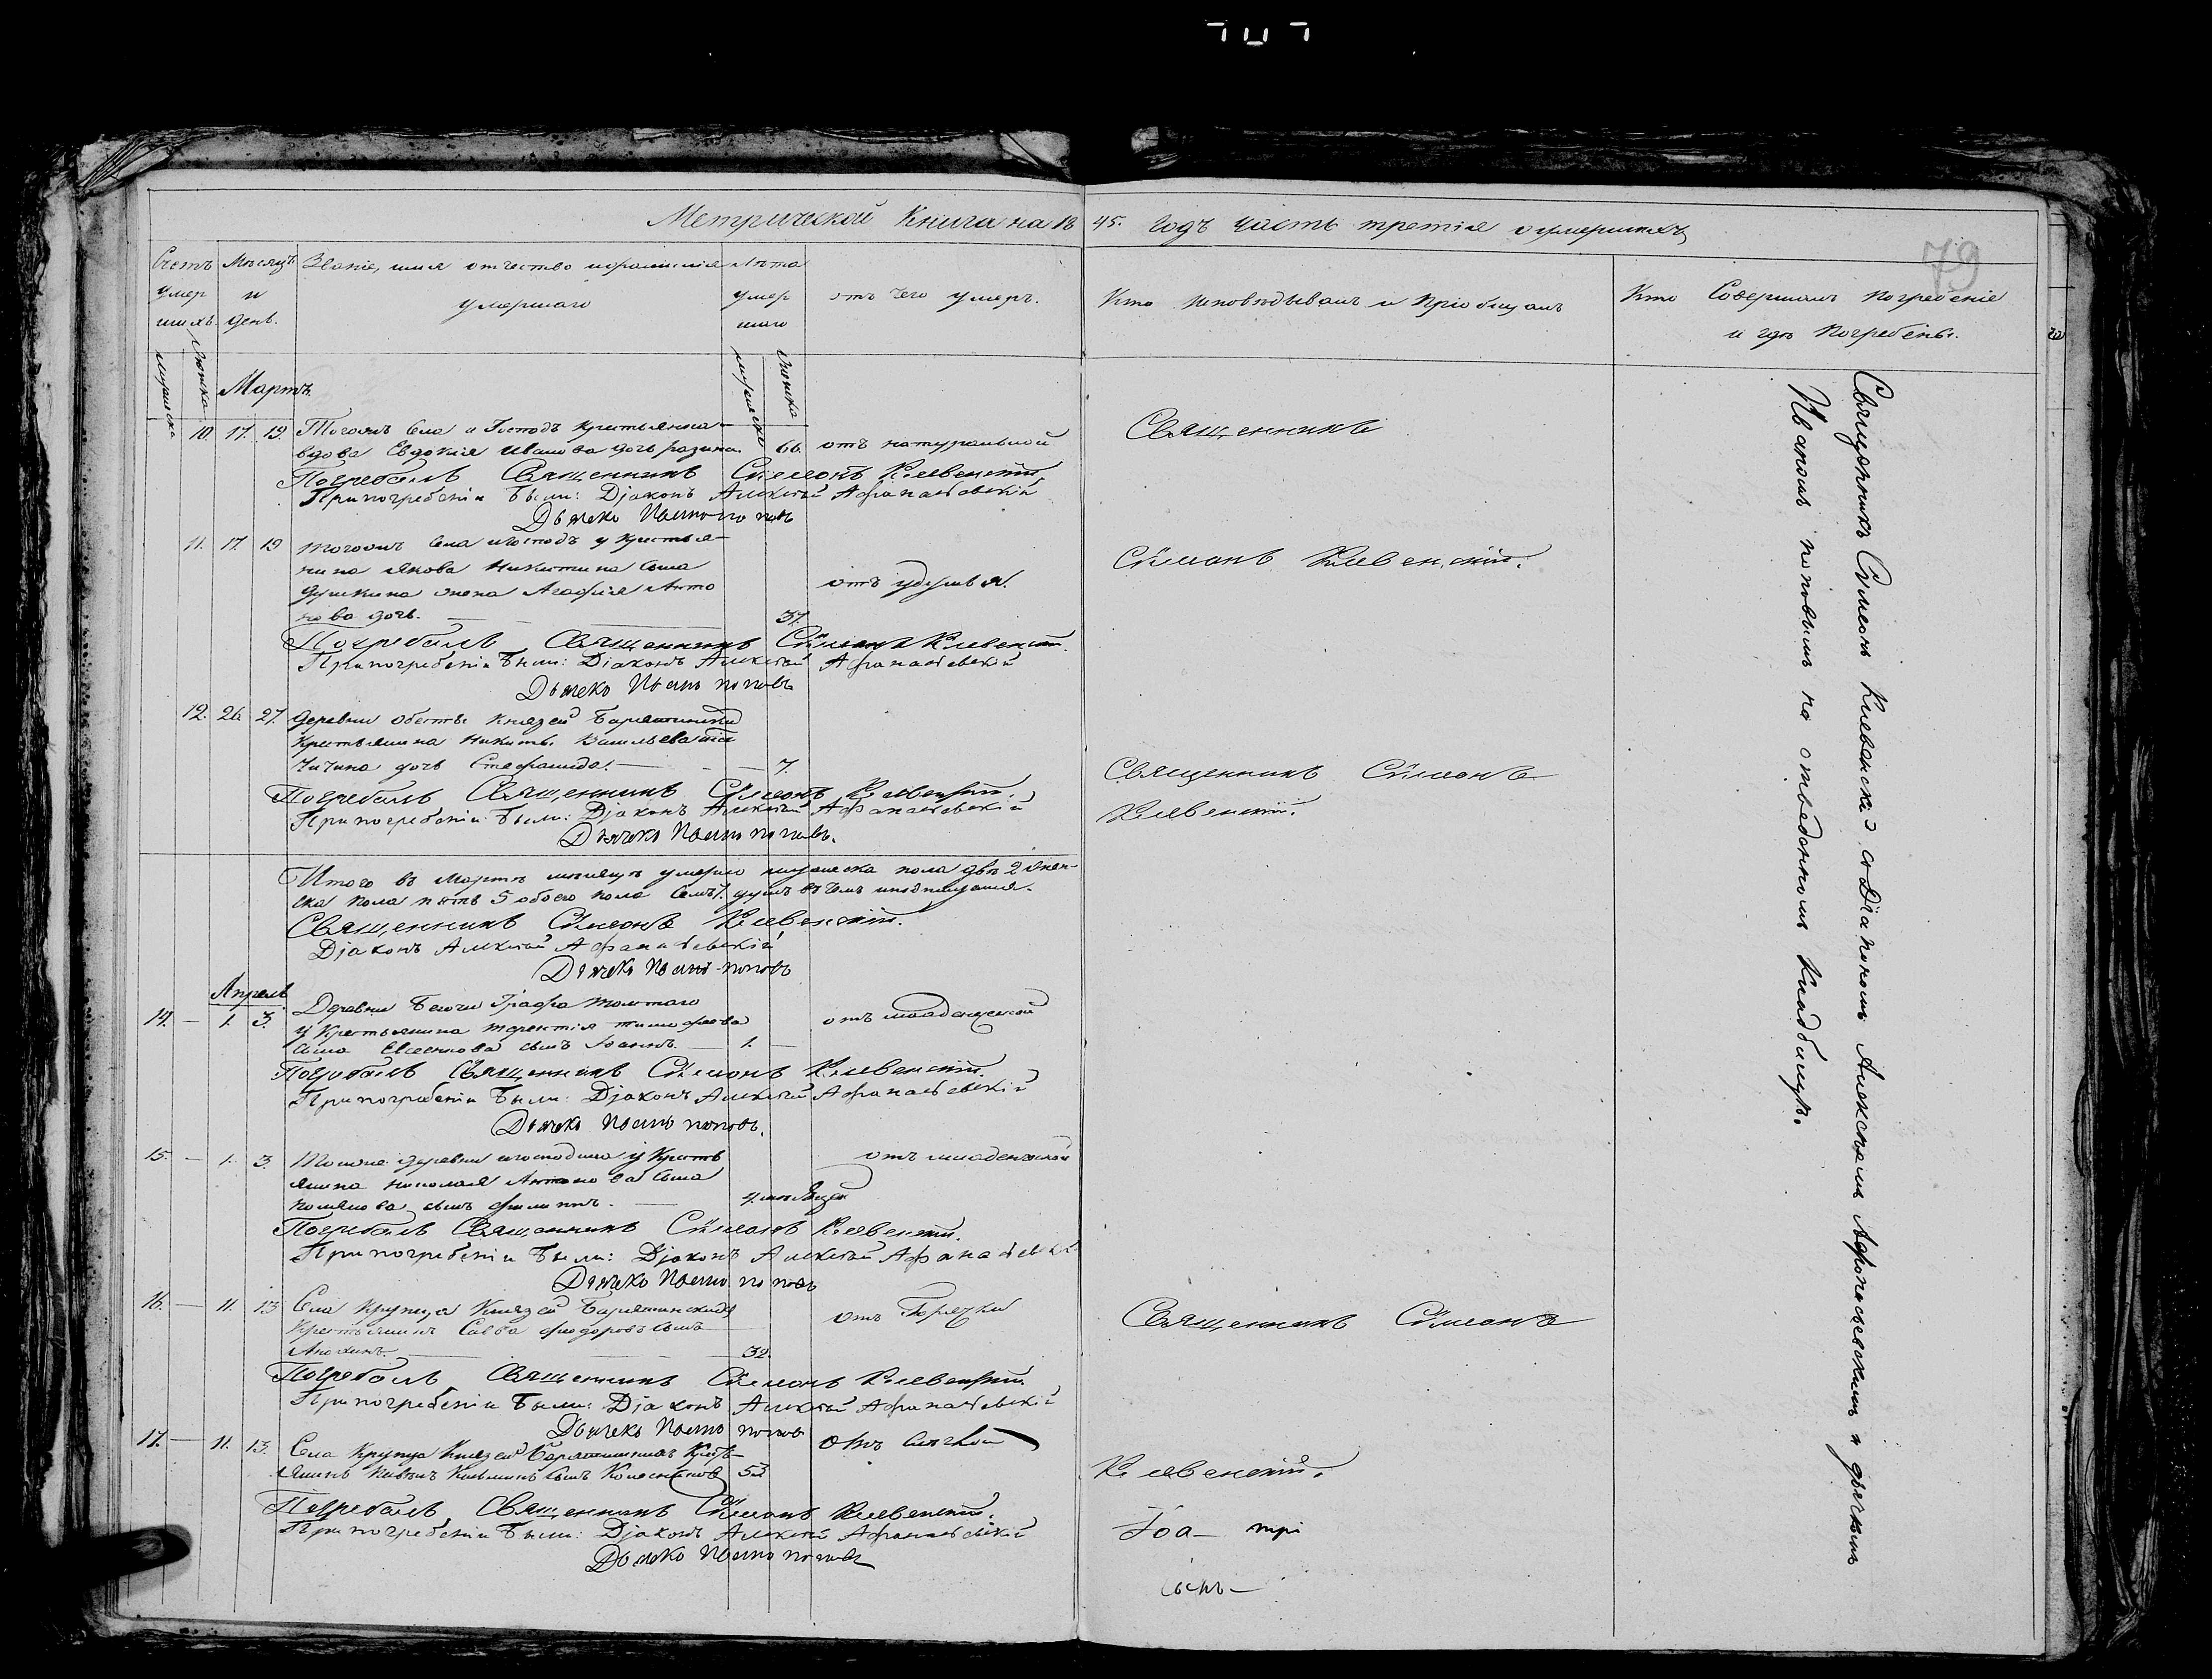 Метрической Книги на 1845. годъ часть третія о умершихъ
79
Счетъ умершихъ.
мужеска
женска
Мѣсяцъ и день.
Званіе, имя отчество и фамилія умершаго
Лѣта умершаго
мужеска
женска
отъ чего умеръ.
Кто исповѣдывалъ и пріобщалъ
Кто Совершалъ погребеніе
и гдѣ погребены.
Мартъ.
10. 17. 19. Тогожъ села и Господъ крестьянка
вдова Евдокія Иванова дочь 66. отъ натуральной
Священникъ
Погребалъ Священникъ Сѵмеонъ Клевенскій
При погребеніи Были: Діаконъ Алексѣй Афанасьевскій
Дьячекъ Иванъ поповъ
11. 17. 19 тогожъ села и господъ у крестья-
нина Якова Никитина сына
жена Агафія Анто отъ удушья.
нова дочь. 37.
Сѵмеонъ Клевенскій.
Погребалъ Священникъ Сѵмеонъ Клевенскій.
При погребеніи Были: Діаконъ Алексѣй Афанасьевскій
Дьячекъ Иванъ поповъ
12. 26 27. деревни князей Барятинскихъ
крестьянина Никиты Васильева
дочь Стефанида. 7.
Священникъ Сѵмеонъ
Клевенскій.
Погребалъ Священникъ Сѵмеонъ Клевенскій.
При погребеніи Были: Діаконъ Алексѣй Афанасьевскій
Дьячекъ Иванъ поповъ.
Итого въ Мартѣ мѣсяцѣ умерло мужеска пола двѣ 2 жен-
ска пола пять 5 обоего пола семь 7. душъ въ чемъ и подпишемся.
Священникъ Сѵмеонъ Клевенскій.
Діаконъ Алексѣй Афанасьевскій
Дьячекъ Иванъ поповъ
Апрель
14. — 1. 3. Деревни Графа Толстаго
у крестьянина Терентія Тимофеева отъ младенческой
сына сынъ Іоаннъ. 1. —
Погребалъ Священникъ Сѵмеонъ Клевенскій.
При погребеніи Были: Діаконъ Алексѣй Афанасьевскій
Дьячекъ Иванъ поповъ.
15. — 1. 3. Тойже деревни и господина у кресть отъ младенческой
янина Николая Антонова сына
сынъ Филиппъ. 4. мѣсяца
Погребалъ Священникъ Сѵмеонъ Клевенскій.
При погребеніи Были: Діаконъ Алексѣй Афанасьевскій
Дьячекъ Иванъ поповъ
16. — 11. 13 Села Крупца Князей Барятинскихъ отъ Горячки
Крестьянинъ Савва Феодоровъ сынъ
32.
Священникъ Сѵмеонъ
Погребалъ Священникъ Сѵмеонъ Клевенскій
При погребеніи Были: Діаконъ Алексѣй Афанасьевскій
Дьячекъ Иванъ поповъ
17. — 11. 13. Села Крупца Князей Барятинскихъ Кресть-
янинъ сынъ Колесниковъ 53
Клевенскій.
Погребалъ Священникъ Сѵмеонъ Клевенскій.
При погребеніи Были: Діаконъ Алексѣй Афанасьевскій
Дьячекъ Иванъ поповъ
Священникъ Сѵмеонъ Клевенскій съ Діакономъ Алексѣемъ Афонасьевскимъ и дьячкомъ
Иваномъ поповымъ на отведенномъ Кладбищѣ.